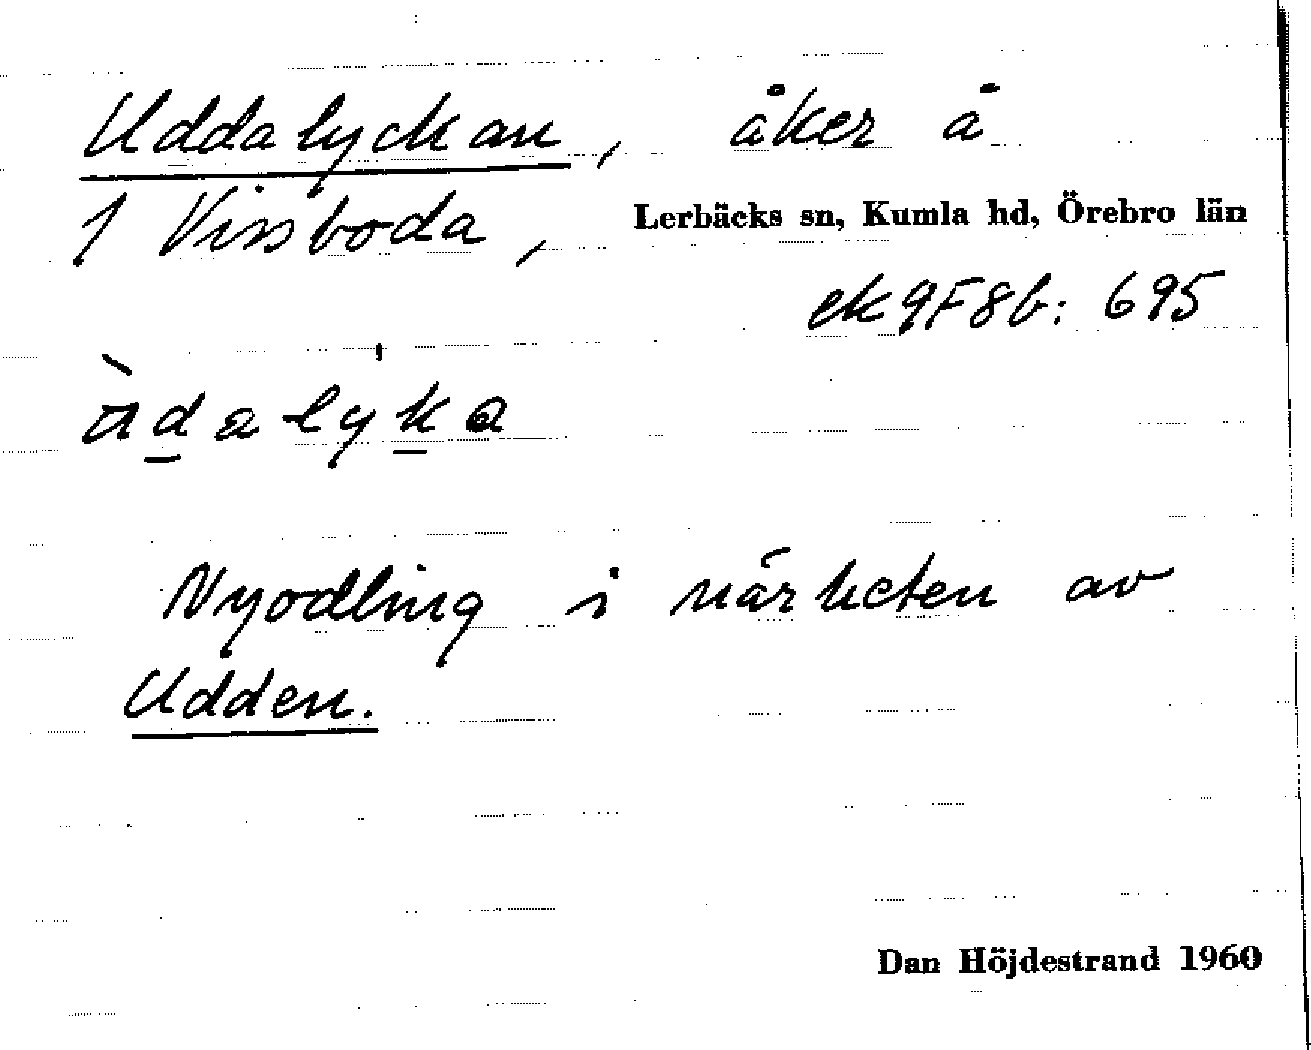 Uddalyckan, åker å
1 Vissboda, Lerbäcks sn, Kumla hd, Örebro län
ek 9F8b: 695
Nyodling i närheten av
Udden.
Dan Höjdestrand 1960